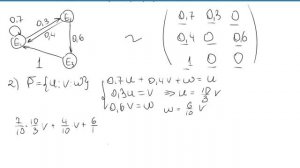 0.7 0,3 E₂
0,4 0,6
E₁
1 E₃
~ ( 0,7 0,3 0
0,4 0 0,6
1 0 0 )
2) P⃗ = {u; v; w} { 0.7u + 0,4v + w = u
0,3u = v ⇒ u = 10/3 v
0,6v = w w = 6/10 v
7/10 · 10/3 v + 4/10 v + 6/1